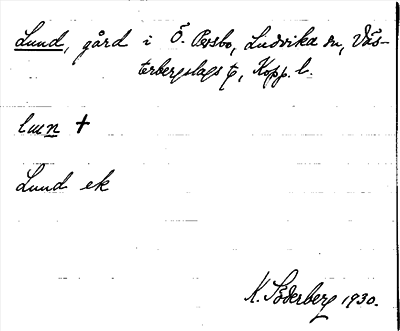 Lund, gård i Ö. Persbo, Ludvika sn, Väs-
terbergslags tg, Kopp. l.
lun +
Lund ek
K. Söderberg 1930.